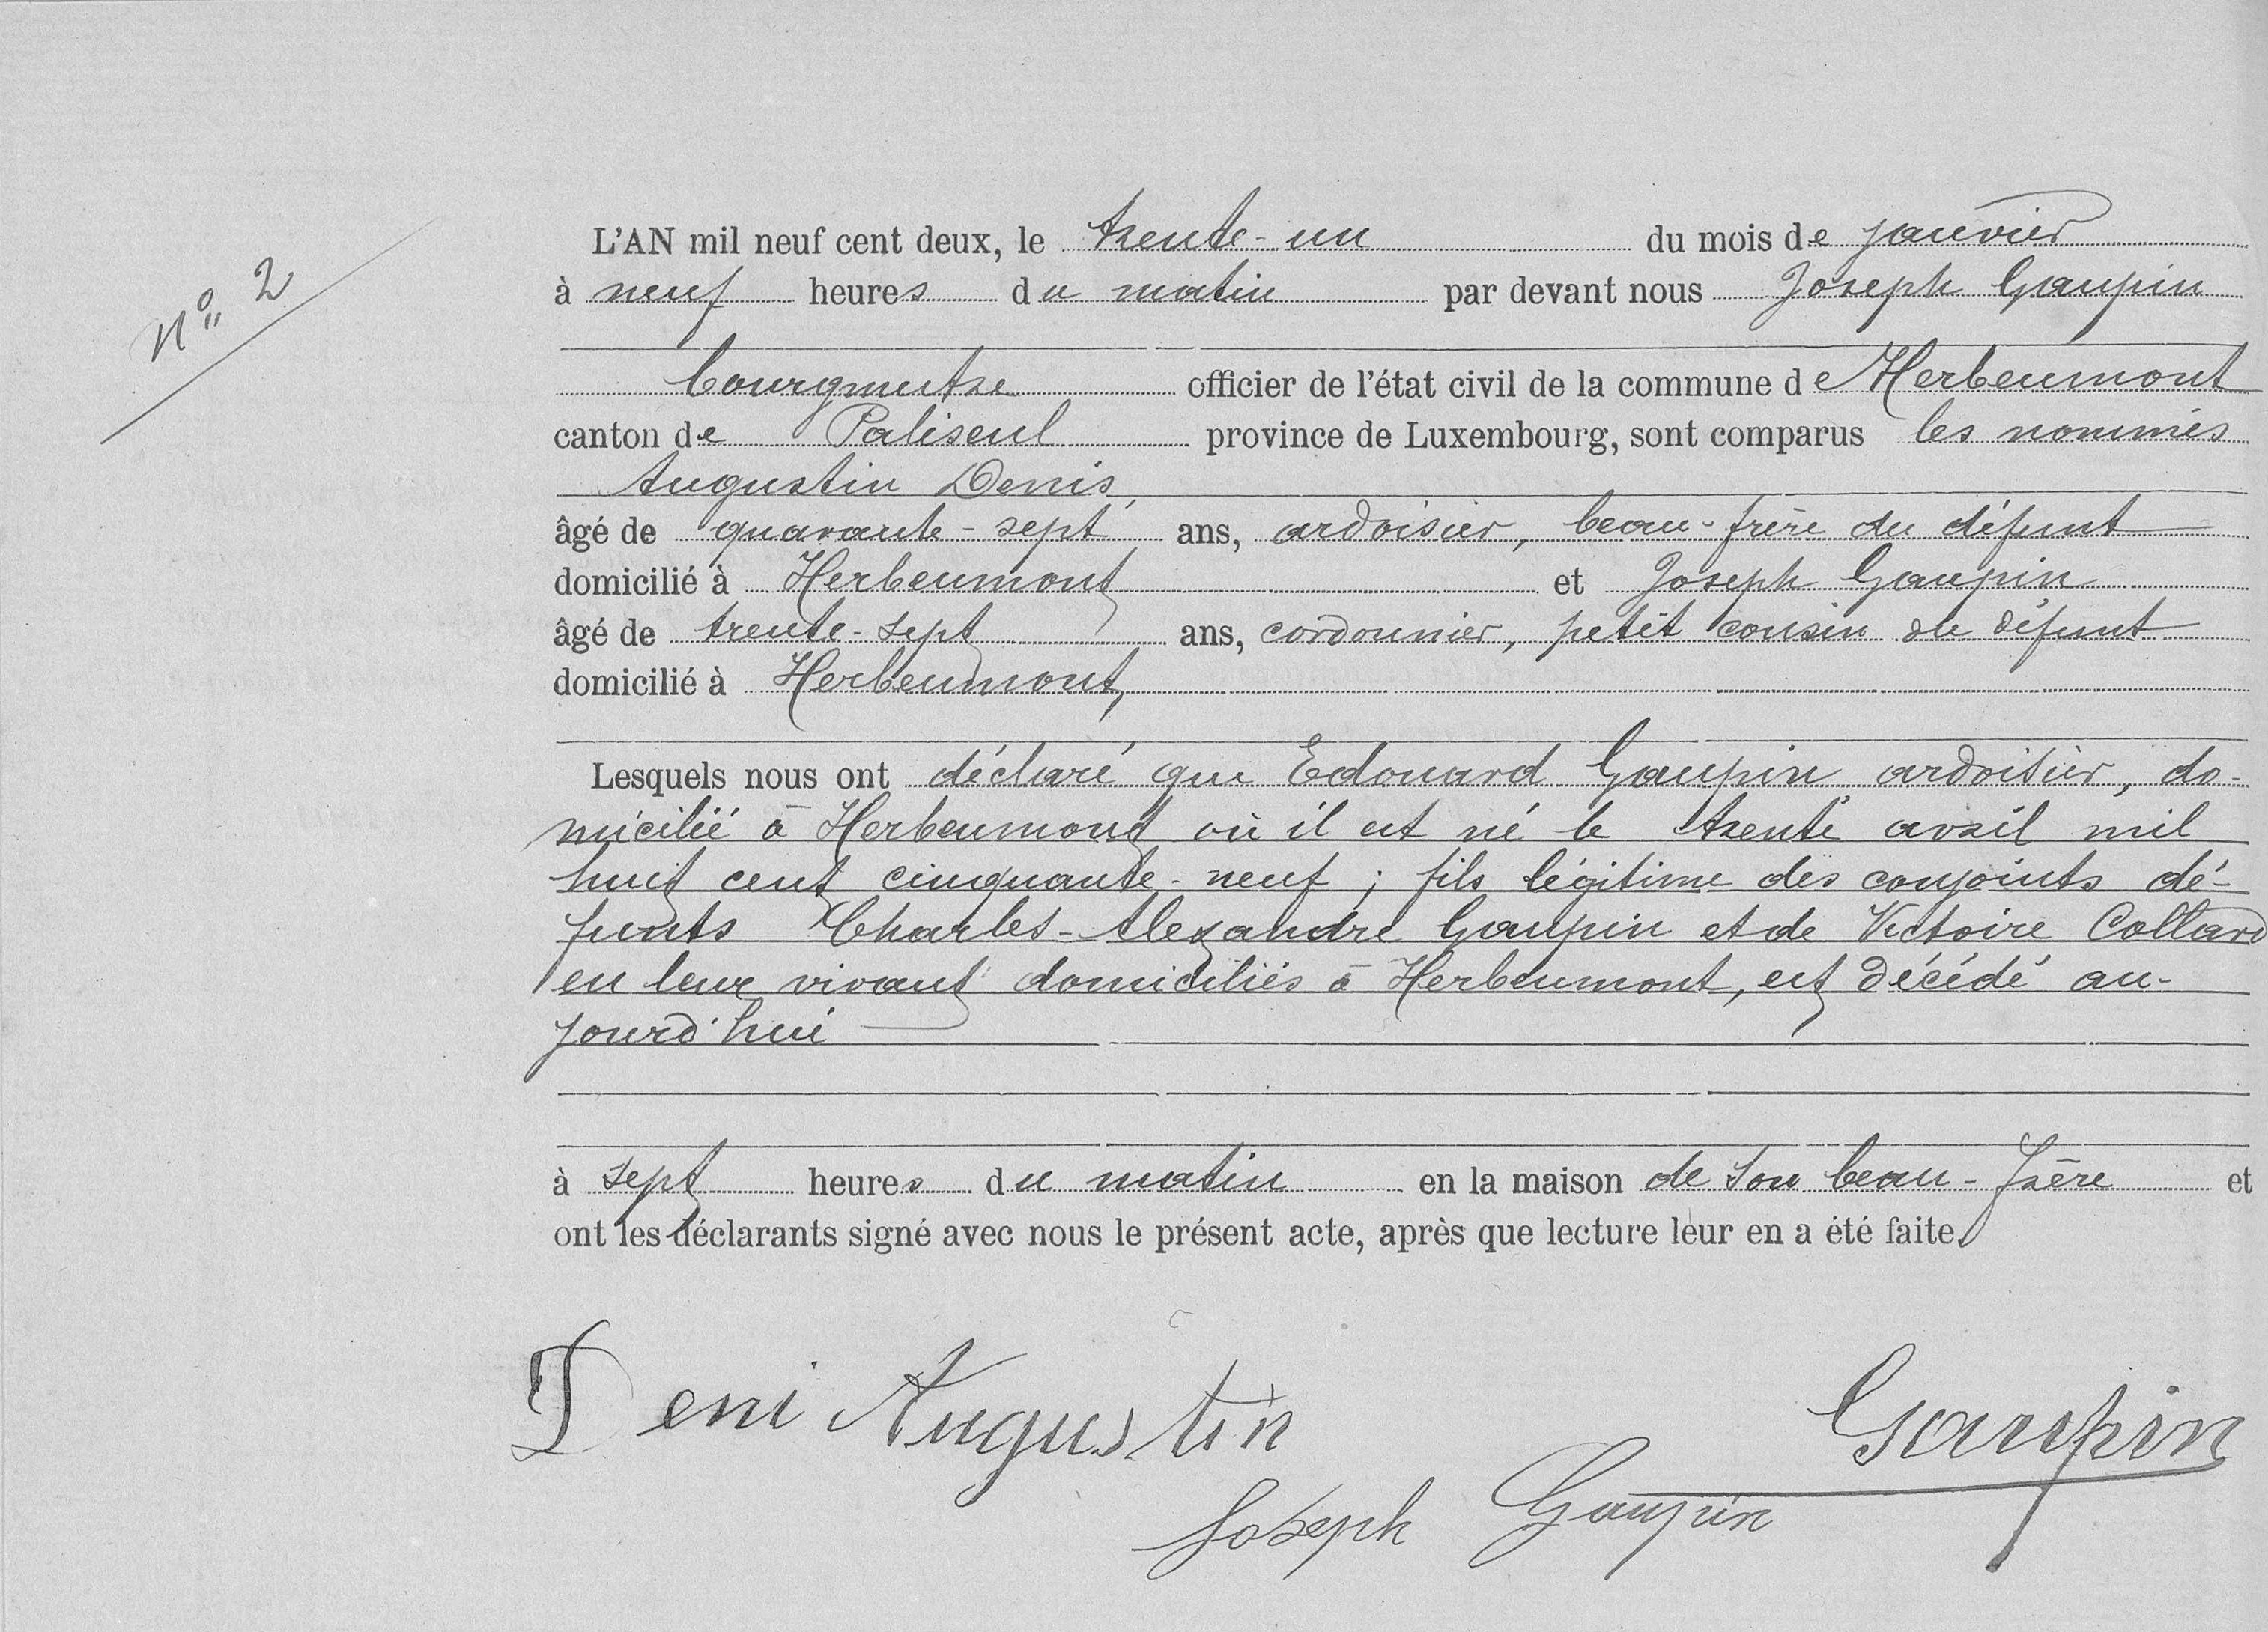 N° 2
L'AN mil neuf cent deux, le trente-un du mois de janvier
à neuf heures du matin par devant nous Joseph Gaupin
bourgmetre officier de l'état civil de la commune de Herbeumont
canton de Paliseul province de Luxembourg, sont comparus les nommés
Augustin Denis,
âgé de quarante-sept ans, ardoisier, beau-frère du défunt
domicilié à Herbeumont et Joseph Gaupin
âgé de trente-sept ans, cordonnier, petit cousin du défunt
domicilié à Herbeumont,
Lesquels nous ont déclaré que Edouard Gaupin, ardoisier, do-
micilié à Herbeumont où il est né le trente avril mil
huit cent cinquante-neuf ; fils légitime des conjoints dé-
funts Charles-Alexandre Gaupin et de Victoire Collard
en leur vivant domiciliés à Herbeumont, est décédé au-
jourd'hui
à sept heures du matin en la maison de son beau-frère et
ont les déclarants signé avec nous le présent acte, après que lecture leur en a été faite.
Deni Augustin
Gaupin
Joseph Gaupin